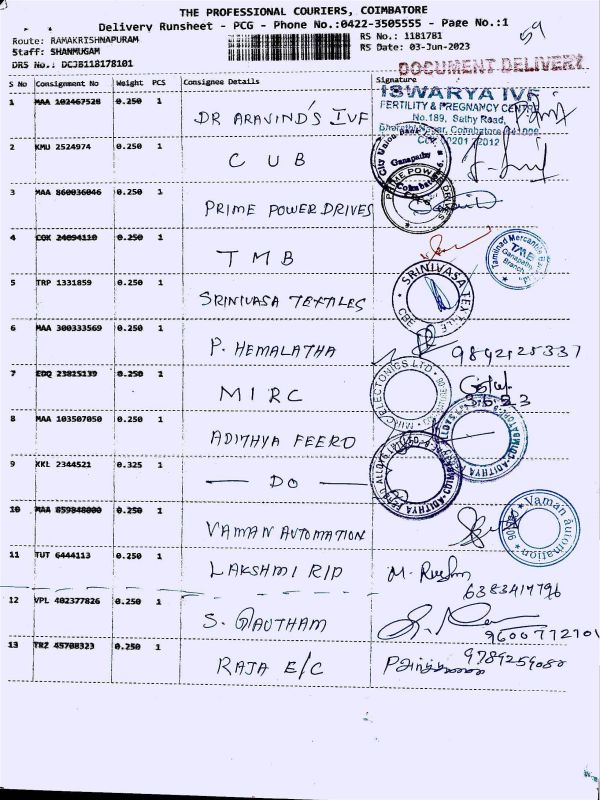 THE PROFESSIONAL COURIERS, COIMBATORE
Delivery Runsheet - PCG - Phone No.:0422-3505555 - Page No.:1
59
Route: RAMAKRISHNAPURAM
RS No.: 1181781
Staff: SHANMUGAM
RS Date: 03-Jun-2023
DRS No.: DCJB118178101
DOCUMENT DELIVERY
S No Consignment No Weight PCS Consignee Details Signature
1 MAA 102467528 0.250 1 DR ARAVIND'S IVF
ISWARYA IVF
FERTILITY & PREGNANCY CENTRE
No.189, Sathy Road,
2 KMU 2524974 0.250 1 CUB
City Union Bank
Ganapathy
Coimbatore
3 MAA 860036046 0.250 1 PRIME POWER DRIVES
PRIME POWER DRIVES
CBE
4 CGK 24094110 0.250 1 TMB
Tamilnad Mercantile
TMB
Ganapathy
Branch
5 TRP 1331859 0.250 1 SRINIVASA TEXTILES
SRINIVASA TEXTILE
CBE
6 MAA 300333569 0.250 1 P. HEMALATHA
9842125337
7 EDQ 23815139 0.250 1 MIRC
MIRC ELECTRONICS LTD
3.6.23
8 MAA 103507050 0.250 1 ADITHYA FEERO
9 KKL 2344521 0.325 1 — DO —
10 MAA 859848000 0.250 1 VAMAN AUTOMATION
Vaman Automation
11 TUT 6444113 0.250 1 LAKSHMI RIP
6383414796
12 VPL 402377826 0.250 1 S. GAUTHAM
9600772101
13 TRZ 45708323 0.250 1 RAJA E/C
9789259080